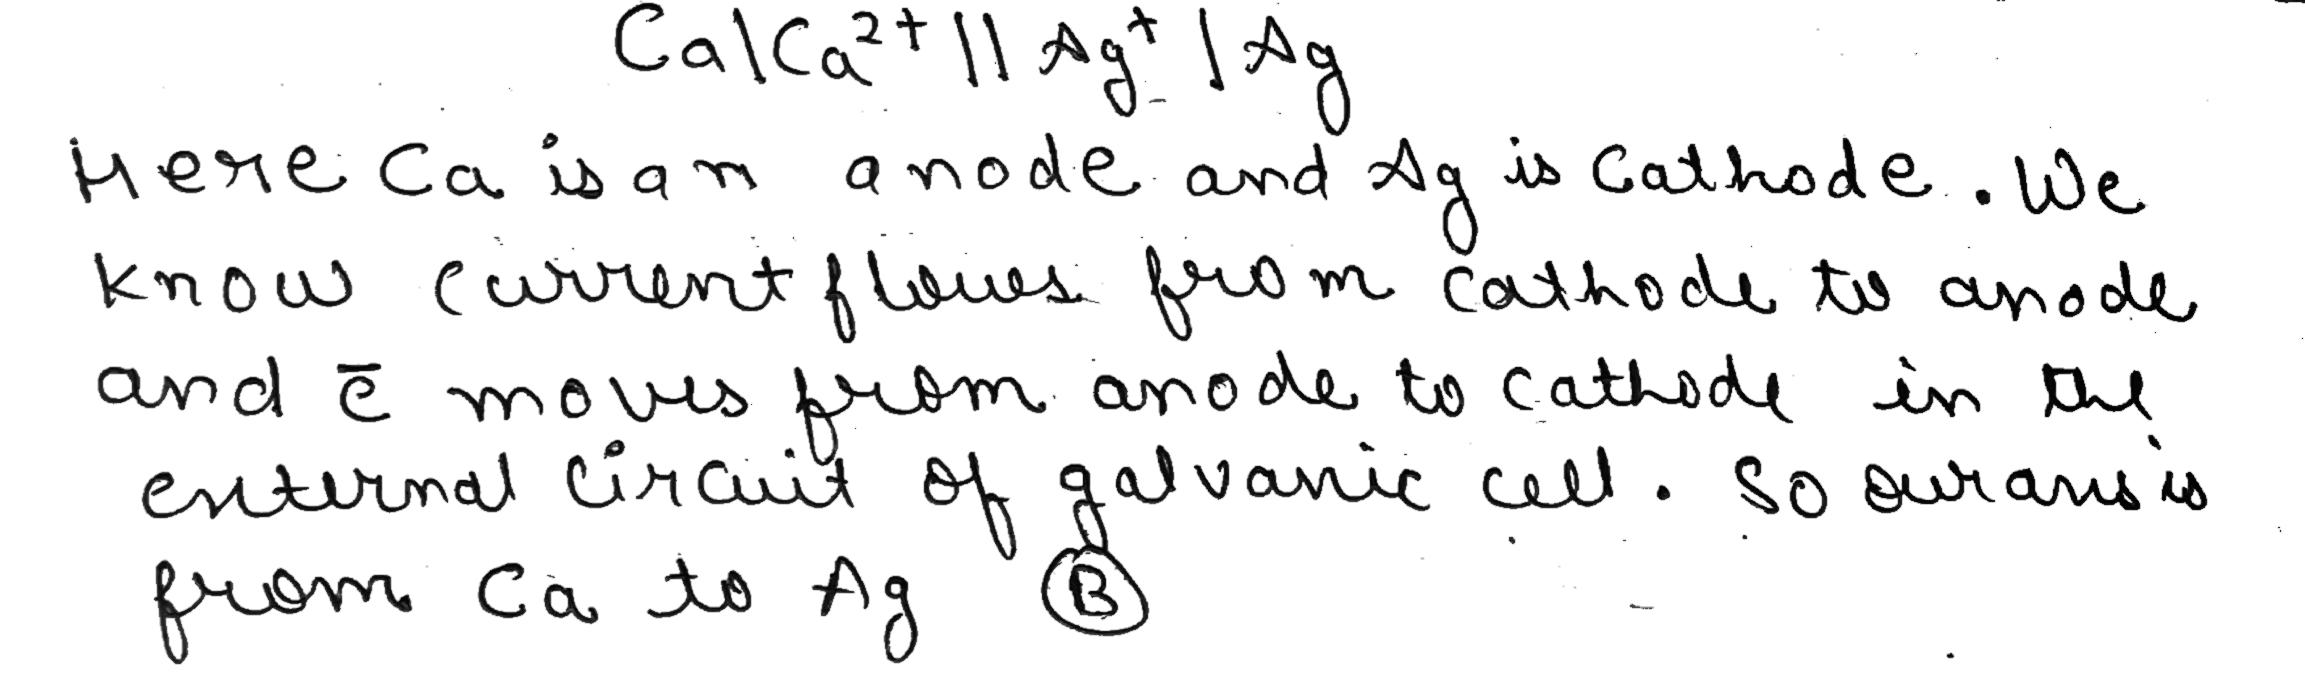 Ca|Ca²⁺||Ag⁺|Ag
Here Ca is an anode and Ag is Cathode. We
know current flows from cathode to anode
and ē moves from anode to cathode in the
external circuit of galvanic cell. So our ans is
from Ca to Ag Ⓑ